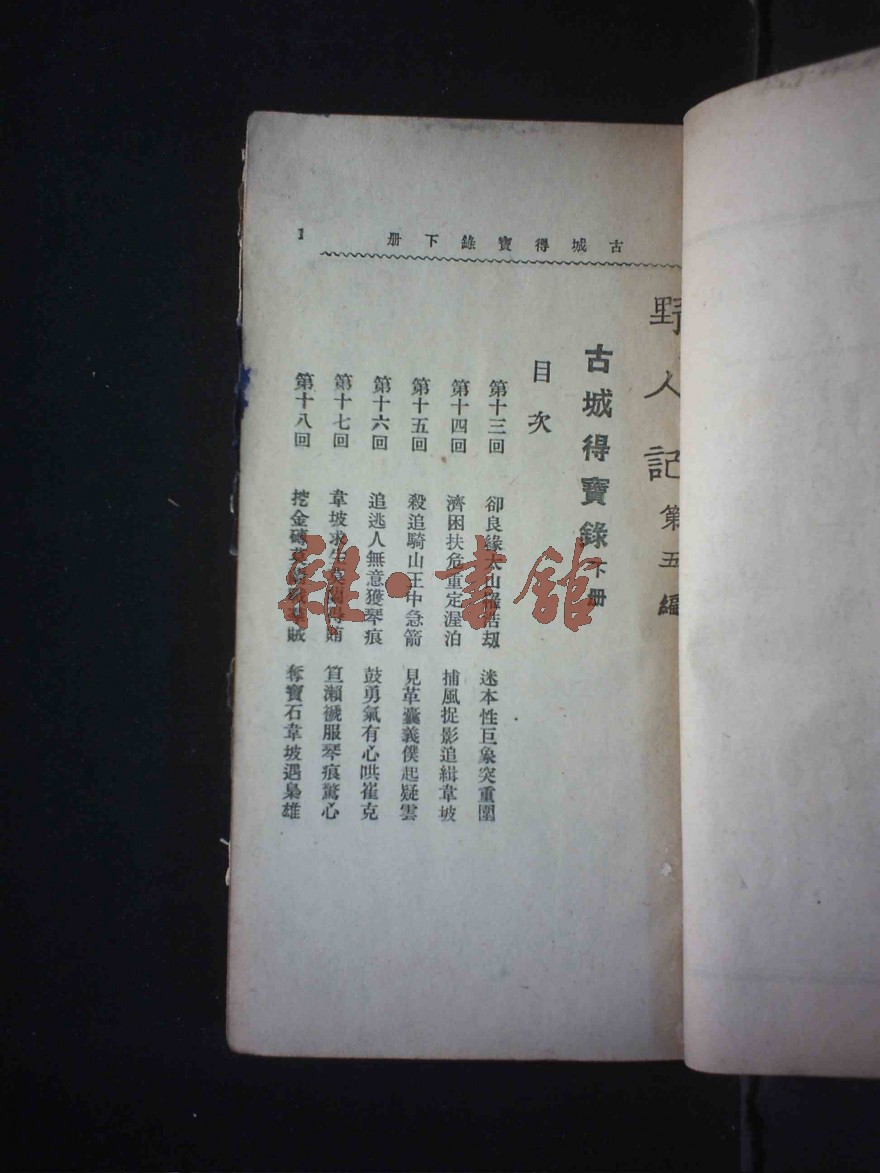 古城得寶錄下册
1
野人記 第五編
古城得寶錄 下册
目次
第十三回 卻良緣太山罹浩劫 迷本性巨象突重圍
第十四回 濟困扶危重定渥泊 捕風捉影追緝韋坡
第十五回 殺追騎山王中急箭 見革囊義僕起疑雲
第十六回 追逃人無意獲琴痕 鼓勇氣有心哄崔克
第十七回 韋坡求生 賄 笪瀨褫服琴痕驚心
第十八回 挖金磚 賊 奪寶石韋坡遇梟雄
雜·書館